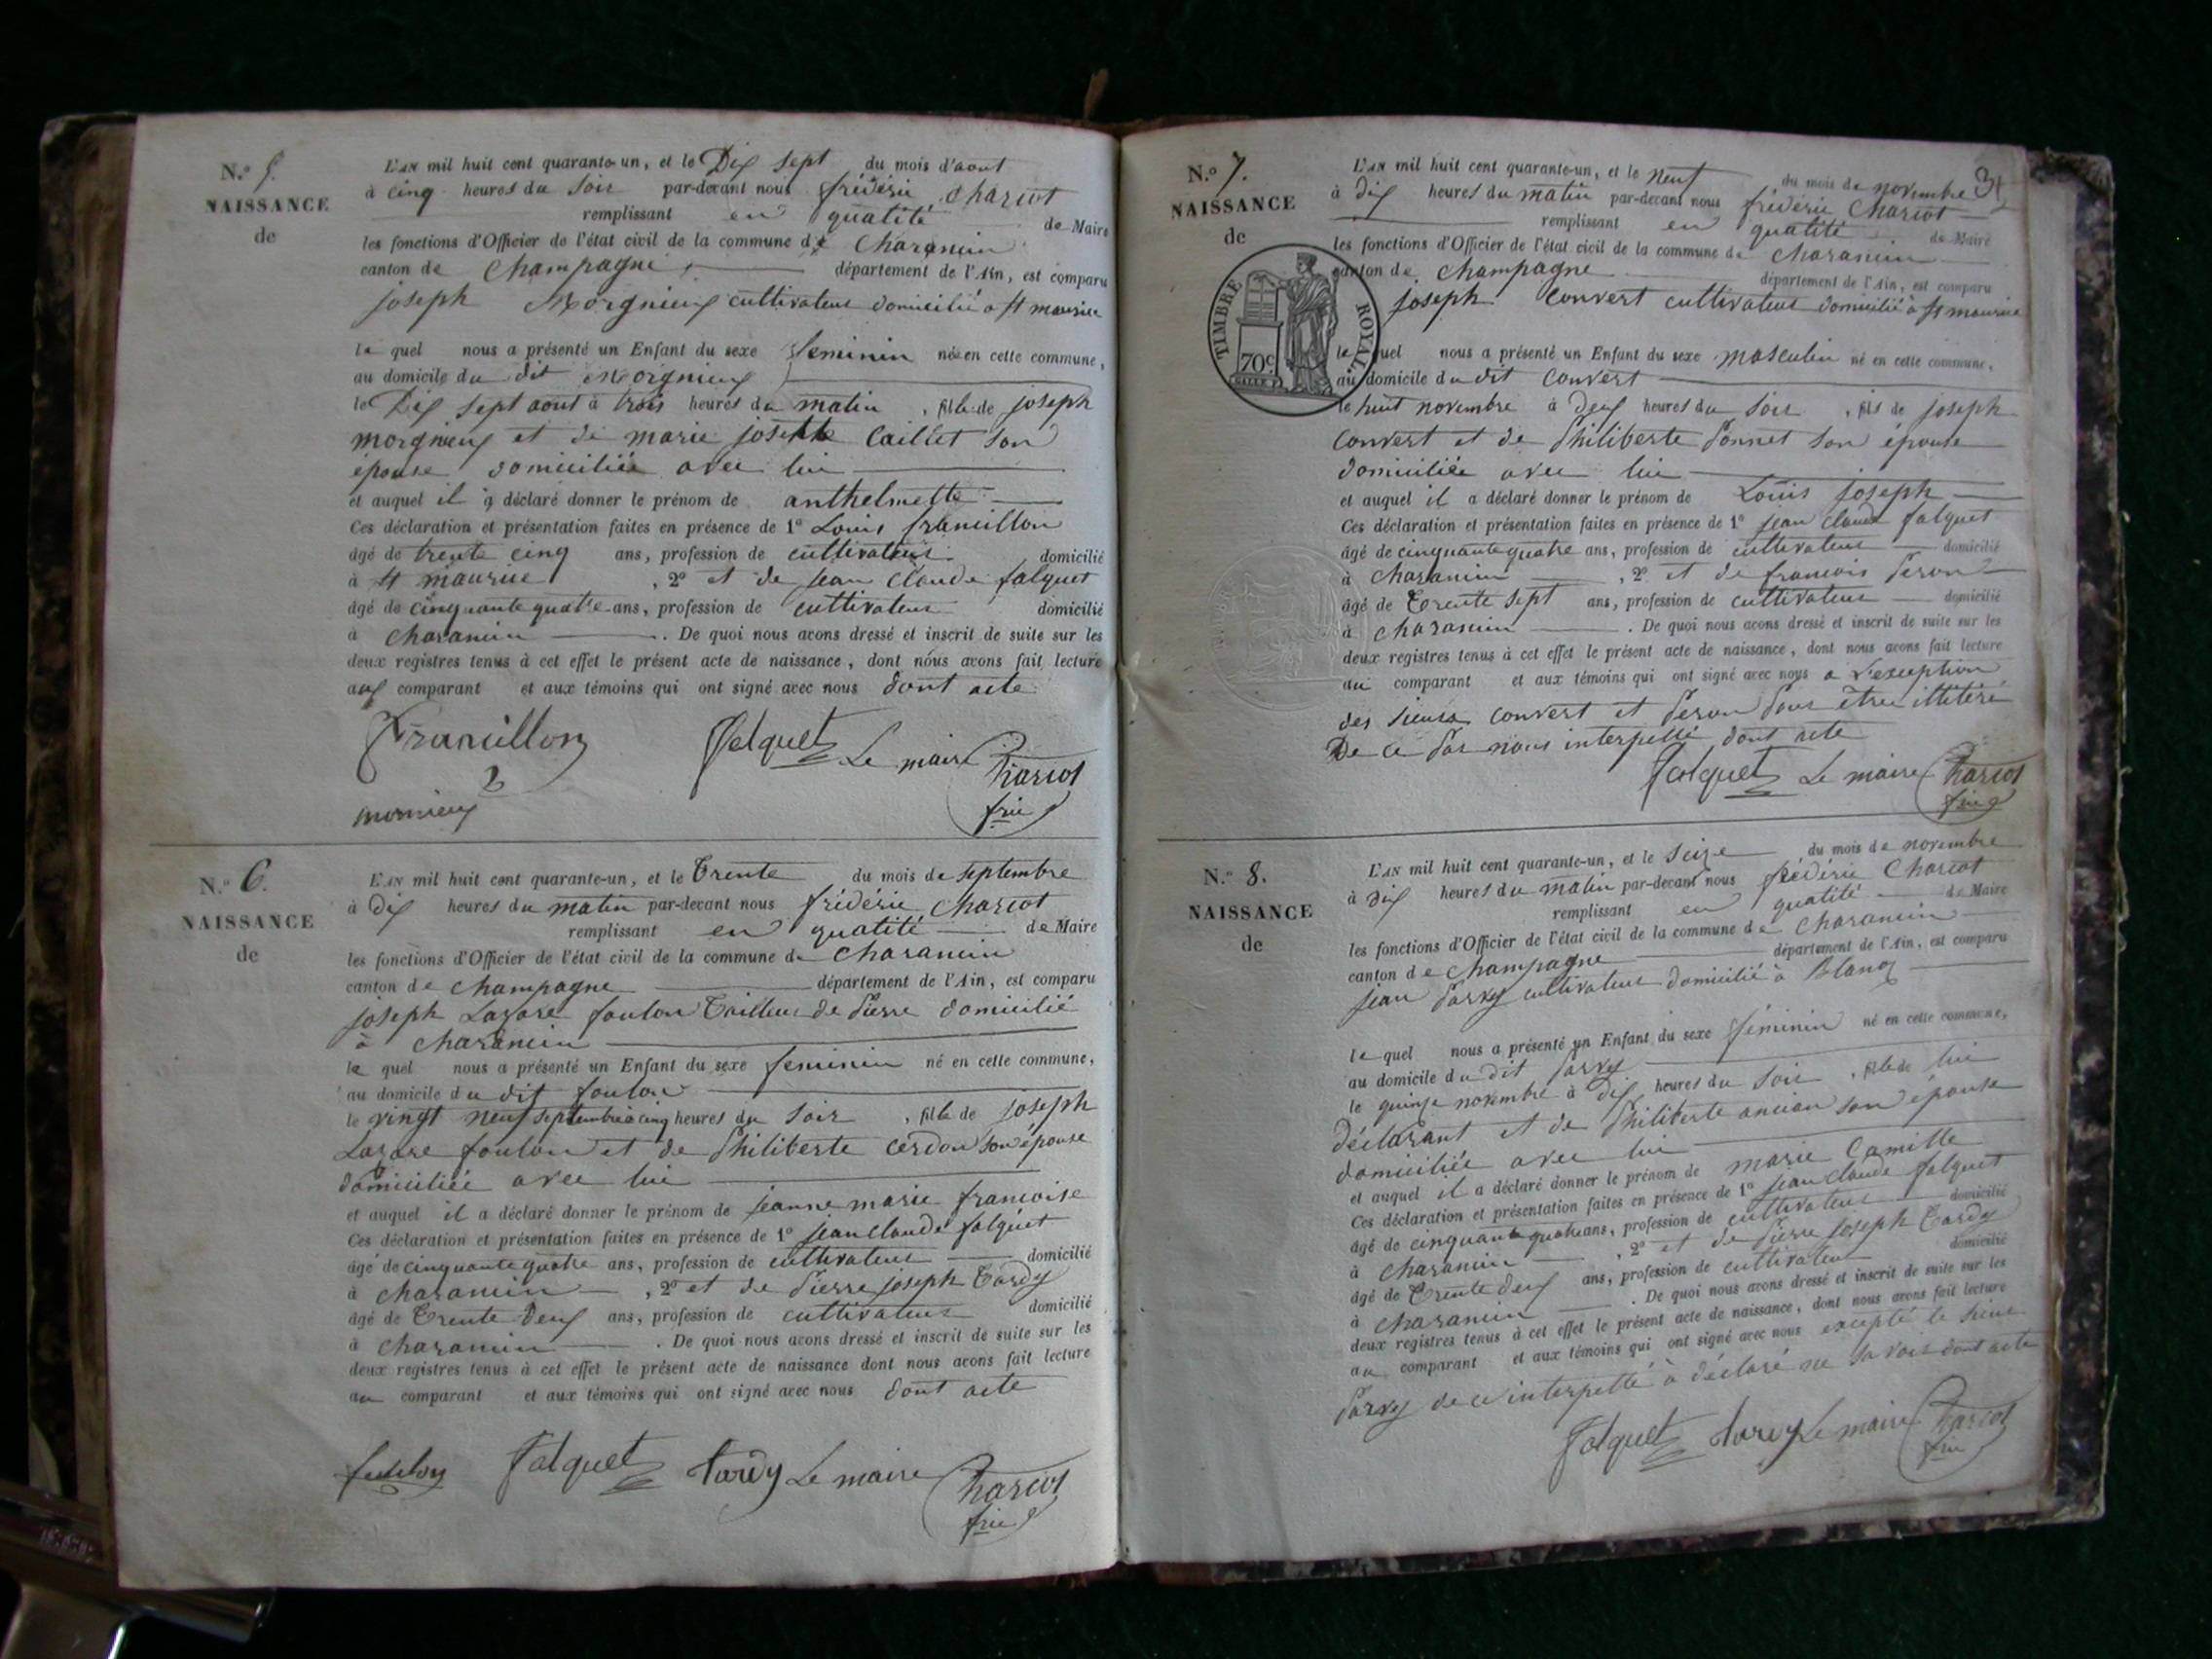 N.° 5.
NAISSANCE
de
L'AN mil huit cent quarante-un, et le Dix sept du mois d'aout
à cinq heures du soir par-devant nous frédéric Charcot
remplissant en qualité de Maire
les fonctions d'Officier de l'état civil de la commune de Charancin
canton de Champagne département de l'Ain, est comparu
joseph Morgnieux cultivateur domicilié a st maurice
le quel nous a présenté un Enfant du sexe feminin née en cette commune,
au domicile du dit Morgnieux
le Dix sept aout à trois heures du matin, fille de joseph
morgnieux et de marie josephte Caillet son
épouse domiciliée avec lui
et auquel il a déclaré donner le prénom de anthelmette
Ces déclaration et présentation faites en présence de 1° Louis francillon
âgé de trente cinq ans, profession de cultivateur domicilié
à st maurice, 2° et de jean Claude falquet
âgé de cinquante quatre ans, profession de cultivateur domicilié
à Charancin. De quoi nous avons dressé et inscrit de suite sur les
deux registres tenus à cet effet le présent acte de naissance, dont nous avons fait lecture
aux comparant et aux témoins qui ont signé avec nous dont acte
Francillon falquet Le maire Charcot
fric
mornieux
N.° 6.
NAISSANCE
de
L'AN mil huit cent quarante-un, et le Trente du mois de septembre
à Dix heures du matin par-devant nous frédéric Charcot
remplissant en qualité de Maire
les fonctions d'Officier de l'état civil de la commune de Charancin
canton de Champagne département de l'Ain, est comparu
joseph Lazare foulon Tailleur de Pierre domicilié
à Charancin
le quel nous a présenté un Enfant du sexe feminin né en cette commune,
au domicile du dit foulon
le vingt neuf septembre à cinq heures du soir, fille de joseph
Lazare foulon et de Philiberte cerdon son épouse
domiciliée avec lui
et auquel il a déclaré donner le prénom de jeanne marie francoise
Ces déclaration et présentation faites en présence de 1° jean Claude falquet
âgé de cinquante quatre ans, profession de cultivateur domicilié
à Charancin, 2° et de Pierre joseph Tardy
âgé de Trente Deux ans, profession de cultivateur domicilié
à Charancin. De quoi nous avons dressé et inscrit de suite sur les
deux registres tenus à cet effet le présent acte de naissance dont nous avons fait lecture
au comparant et aux témoins qui ont signé avec nous dont acte
foulon falquet tardy Le maire Charcot
fric
N.° 7.
NAISSANCE
de
TIMBRE ROYAL
70 c.
L'AN mil huit cent quarante-un, et le neuf du mois de novembre
à dix heures du matin par-devant nous frédéric Charcot
remplissant en qualité de Maire
les fonctions d'Officier de l'état civil de la commune de Charancin
canton de Champagne département de l'Ain, est comparu
joseph Convert cultivateur domicilié à st maurice
le quel nous a présenté un Enfant du sexe masculin né en cette commune,
au domicile du dit convert
le huit novembre à deux heures du soir, fils de joseph
convert et de Philiberte Ponnet son épouse
domiciliée avec lui
et auquel il a déclaré donner le prénom de Louis joseph
Ces déclaration et présentation faites en présence de 1° jean Claude falquet
âgé de cinquante quatre ans, profession de cultivateur domicilié
à Charancin, 2° et de francois Peron
âgé de Trente sept ans, profession de cultivateur domicilié
à Charancin. De quoi nous avons dressé et inscrit de suite sur les
deux registres tenus à cet effet le présent acte de naissance, dont nous avons fait lecture
au comparant et aux témoins qui ont signé avec nous a L'exception
des sieurs convert et Peron Pour être illitéré
De ce Par nous interpellé dont acte
falquet Le maire Charcot
fric
N.° 8.
NAISSANCE
de
L'AN mil huit cent quarante-un, et le seize du mois de novembre
à dix heures du matin par-devant nous frédéric Charcot
remplissant en qualité de Maire
les fonctions d'Officier de l'état civil de la commune de Charancin
canton de Champagne département de l'Ain, est comparu
jean Parvy cultivateur domicilié à Blanaz
le quel nous a présenté un Enfant du sexe féminin né en cette commune,
au domicile du dit Parvy
le quinze novembre à dix heures du soir, fille de lui
déclarant et de Philiberte ancian son épouse
domiciliée avec lui
et auquel il a déclaré donner le prénom de marie Camille
Ces déclaration et présentation faites en présence de 1° jean Claude falquet
âgé de cinquante quatre ans, profession de cultivateur domicilié
à Charancin, 2° et de Pierre joseph Tardy
âgé de Trente deux ans, profession de cultivateur domicilié
à Charancin. De quoi nous avons dressé et inscrit de suite sur les
deux registres tenus à cet effet le présent acte de naissance, dont nous avons fait lecture
au comparant et aux témoins qui ont signé avec nous excepté le sieur
Parvy de ce interpellé à déclaré ne savoir dont acte
falquet tardy Le maire Charcot
fric